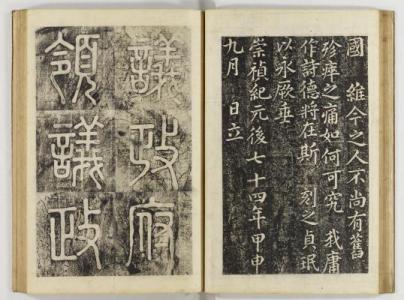 國　維今之人不尚有舊
殄瘁之痛如何可究　我庸
作詩德將在斯　刻之貞珉
以永厥垂
崇禎紀元後七十四年甲申
九月　日立
議政府
領議政